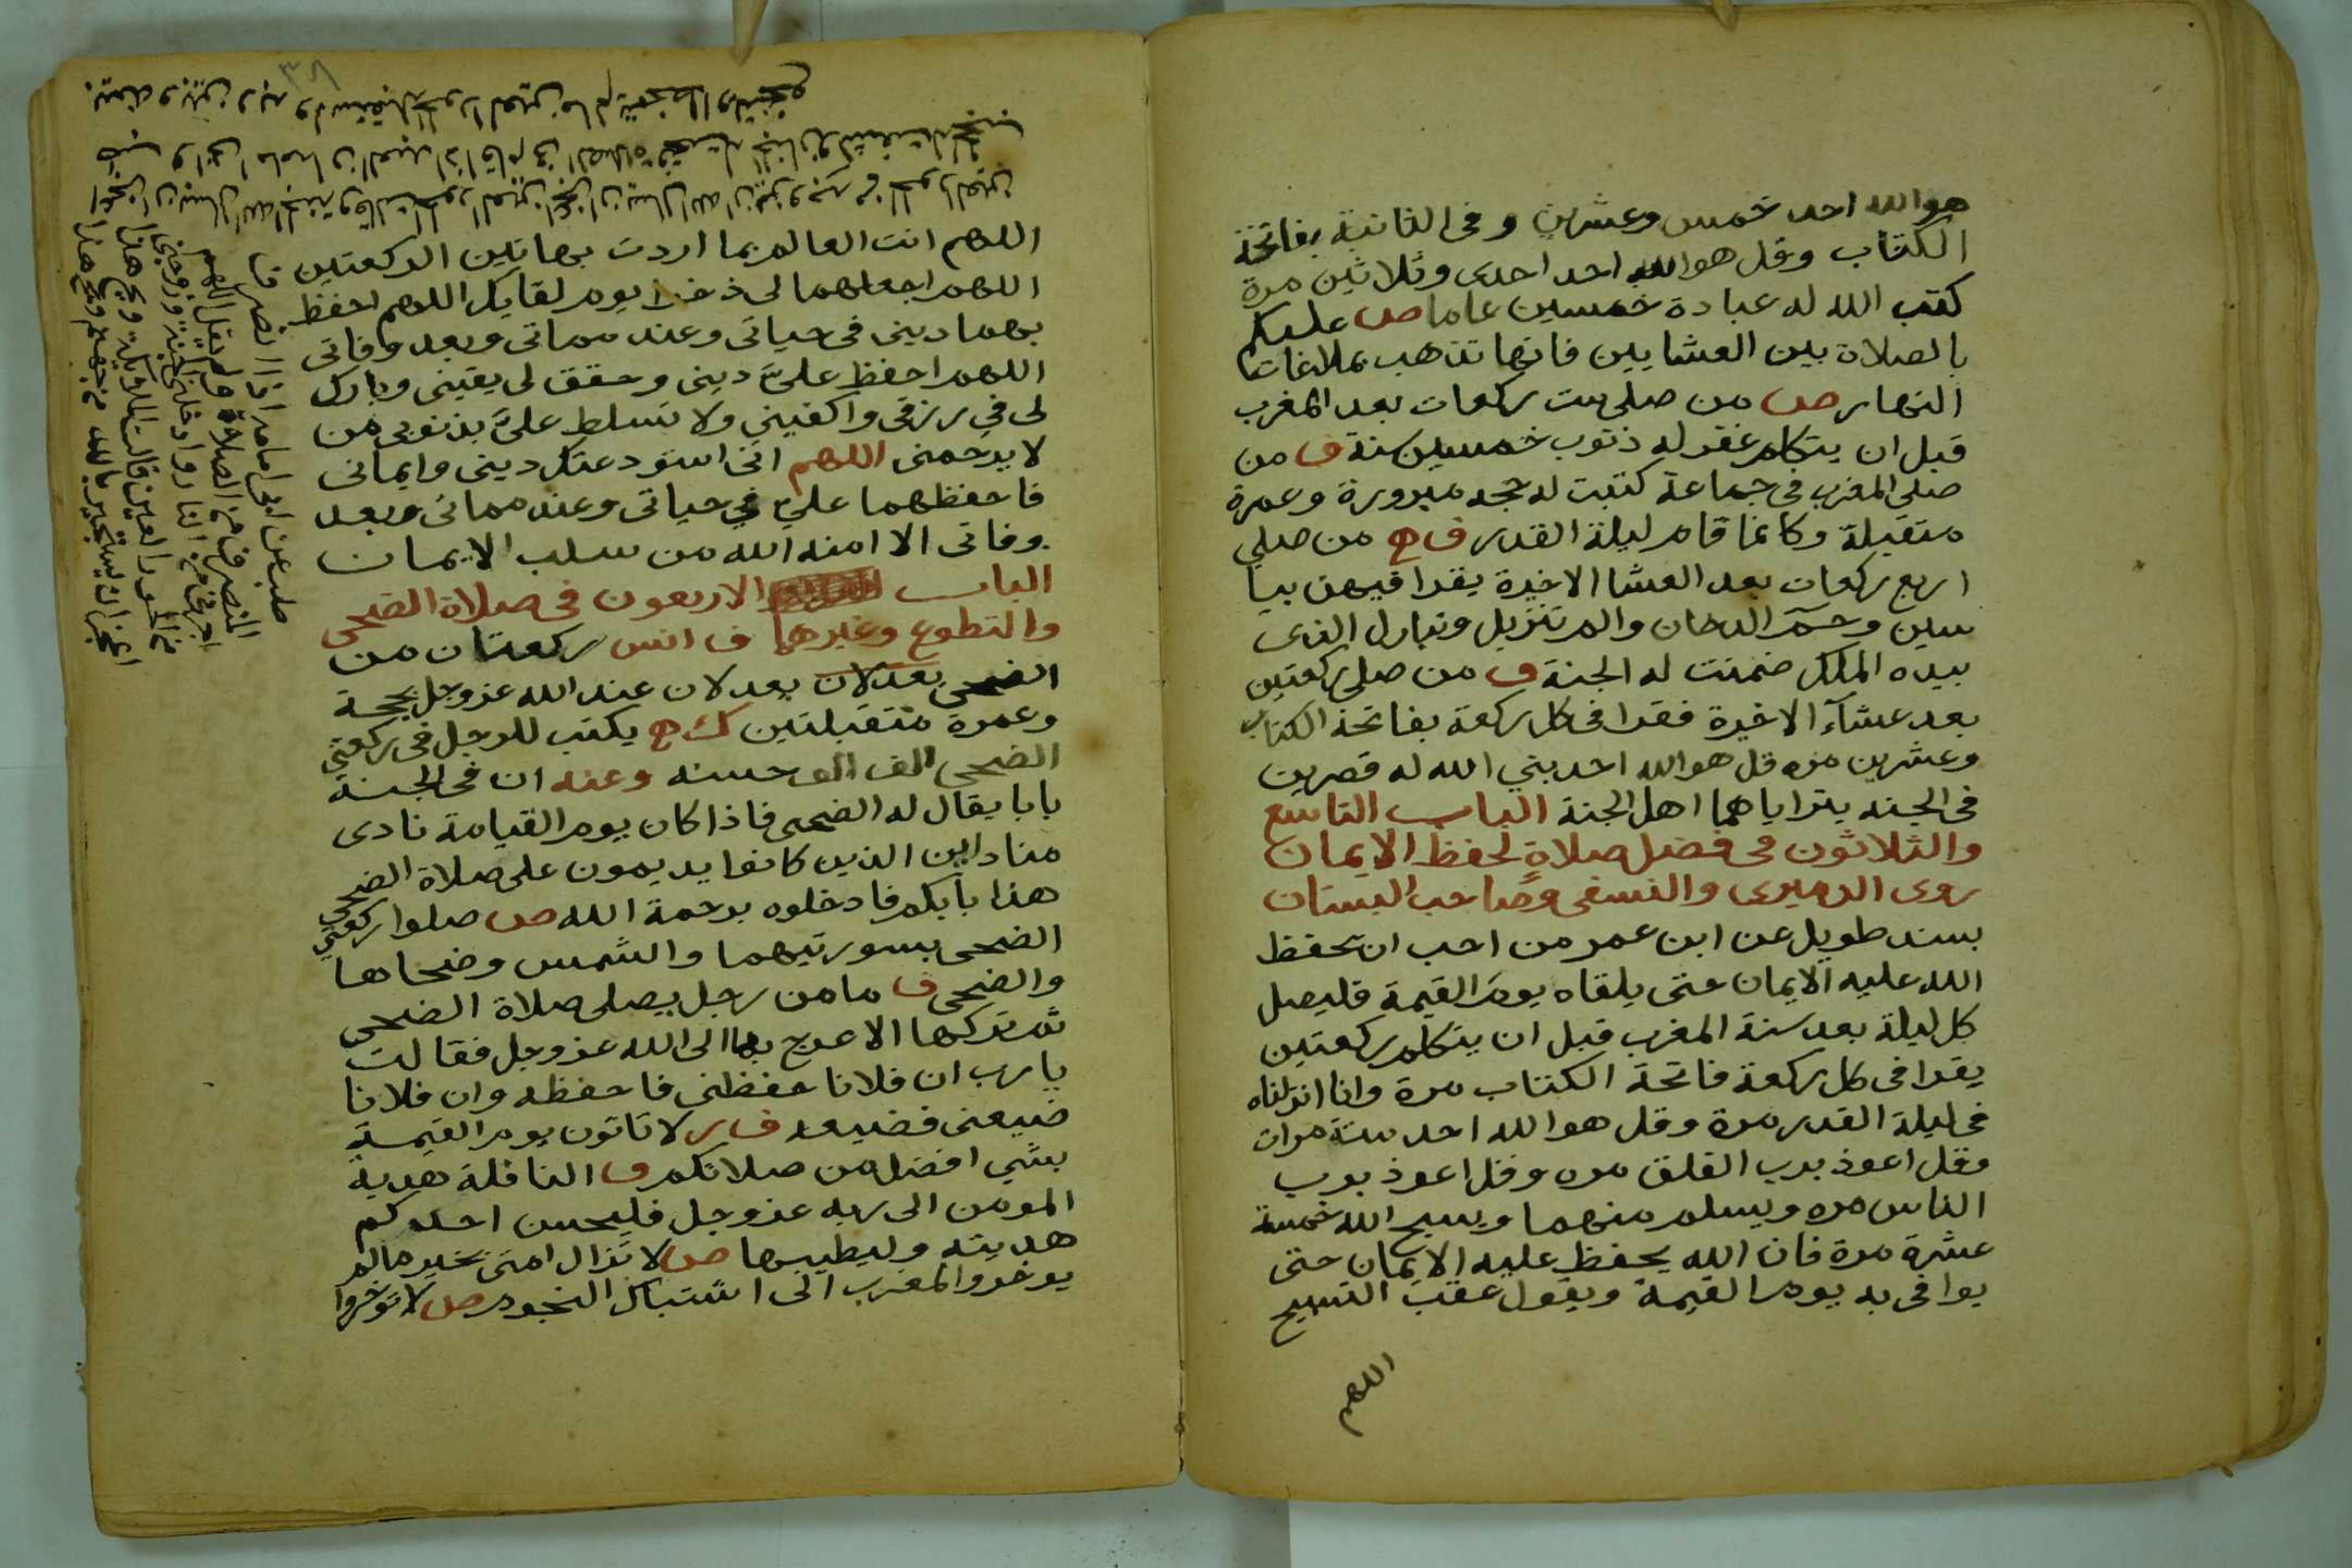 هو الله احد خمس وعشرين وفى الثانية بفاتحة
الكتاب وقل هو الله احد احدى وثلاثين مرة
كتب الله له عبادة خمسين عاما ص عليكم
بالصلاة بين العشايين فانها تذهب بملاغات
النهار ص من صلى ست ركعات بعد المغرب
قبل ان يتكلم غفر له ذنوب خمسين سنة ف من
صلى المغرب فى جماعة كتبت له حجه مبرورة وعمرة
متقبلة وكانما قام ليلة القدر ف ح من صلى
اربع ركعات بعد العشا الاخيرة يقرا فيهن بيا
سين وحم الدخان والم تنزيل وتبارك الذى
بيده الملك ضمنت له الجنة ف من صلى ركعتين
بعد عشآء الاخيرة فقرا فى كل ركعة بفاتحة الكتاب
وعشرين مره قل هو الله احد بني الله له قصرين
فى الجنه يتراياهما اهل الجنة الباب التاسع
والثلاثون فى فضل صلاة لحفظ الايمان
روى الدميرى والنسفى وصاحب البستان
بسند طويل عن ابن عمر من احب ان يحفظ
الله عليه الايمان حتى يلقاه يوم القيمة فليصل
كل ليلة بعد سنة المغرب قبل ان يتكلم ركعتين
يقرا فى كل ركعة فاتحة الكتاب مرة وانا انزلناه
فى ليلة القدر مرة وقل هو الله احد ستة مرات
وقل اعوذ برب الفلق مره وقل اعوذ برب
الناس مره ويسلم منهما ويسبح الله خمسة
عشرة مرة فان الله يحفظ عليه الايمان حتى
يوافى به يوم القيمة ويقول عقب التسبيح
اللهم
٣٨
اللهم انت العالم بما اردت بهاتين الركعتين
اللهم اجعلهما لى ذخرا يوم لقايك اللهم احفظ
بهما دينى فى حياتى وعند مماتى وبعد وفاتى
اللهم احفظ علىّ دينى وحقق لى يقينى وبارك
لى في رزقى واكفينى ولا تسلط علىّ بذنوبى من
لا يرحمنى اللهم انى استودعتك دينى وايمانى
فاحفظهما علىّ في حياتى وعند مماتى وبعد
وفاتى الا امنه الله من سلب الايمان
الباب الاربعون فى صلاة الضحى
والتطوع وغيرهما ف انس ركعتان من
الضحى بعدلان يعدلان عند الله عز وجل بحجة
وعمرة متقبلتين ك ح يكتب للرجل فى ركعتي
الضحى الف الف حسنه وعنه ان فى الجنة
بابا يقال له الضحى فاذا كان يوم القيامة نادى
مناد اين الذين كانوا يديمون على صلاة الضحى
هذا بابكم فادخلوه برحمة الله ص صلوا ركعتي
الضحى بسورتيهما والشمس وضحاها
والضحى ف ما من رجل يصلى صلاة الضحى
ثم تركها الا عرج بها الى الله عز وجل فقالت
يا رب ان فلانا حفظنى فاحفظه وان فلانا
ضيعنى فضيعه ف ر لا تاتون يوم القيمة
بشي افضل من صلاتكم ف النافلة هدية
المومن الى ربه عز وجل فليحسن احدكم
هديته وليطيبها ص لا تزال امتى بخير ما لم
يوخروا المغرب الى اشتباك النجوم ص لا توخروا
طب عن ابى امامه اذا انصرف
المنصرف من الصلاة ولم يقل اللهم
اجرنى من النار وادخلنى الجنة وزوجنى
من الحور العين قالت الملايكة ويح هذا
اعجز ان يستجير بالله من جهنم ويح هذا
اعجز ان يسال الله الجنة وقالت الحور العين اعجز ان يسال الله ان يزوجه من الحور العين
طب وابى امامه ان العبد اذا قام فى الصلاة فتحت له الجنان وكشفت له الحجب
بينه وبين ربه واستقبله الحور العين ما لم يتمخط او يتنخع